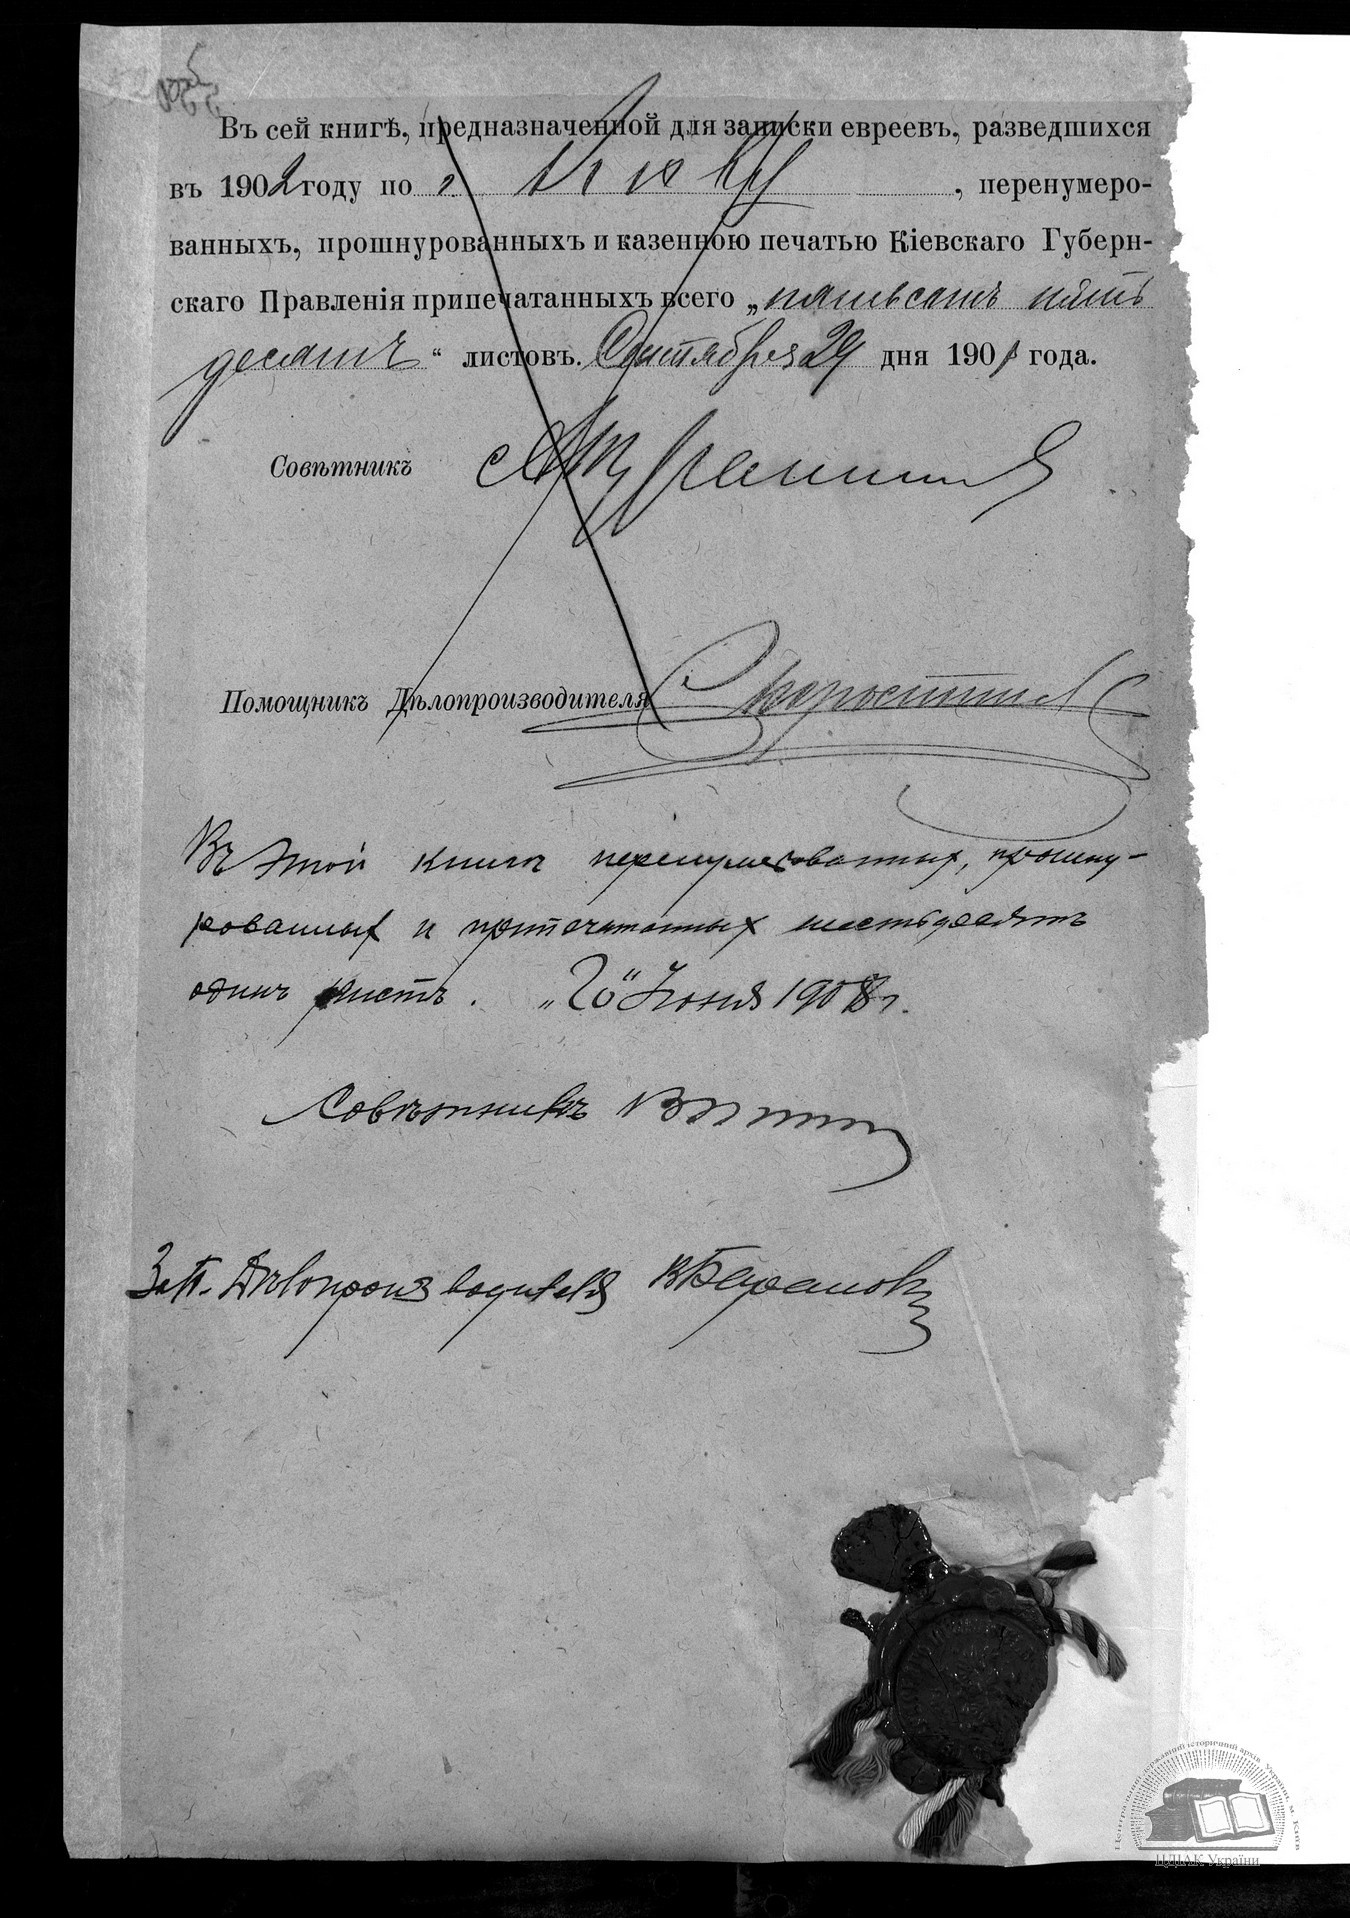 Въ сей книгѣ, предназначенной для записки евреевъ, разведшихся
въ 1902 году по г. Кіеву, перенумеро-
ванныхъ, прошнурованныхъ и казенною печатью Кіевскаго Губерн-
скаго Правленія припечатанныхъ всего „пятьсотъ пять
десятъ“ листовъ. Сентября 29 дня 1901 года.
Совѣтникъ
Помощникъ Дѣлопроизводителя
Въ этой книгѣ перенумерованных, прошну-
рованных и припечатанных шестьдесятъ
один листъ. „26“ Іюня 1908 г.
Совѣтникъ
За П. Дѣлопроизводителя
ЦДІАК України